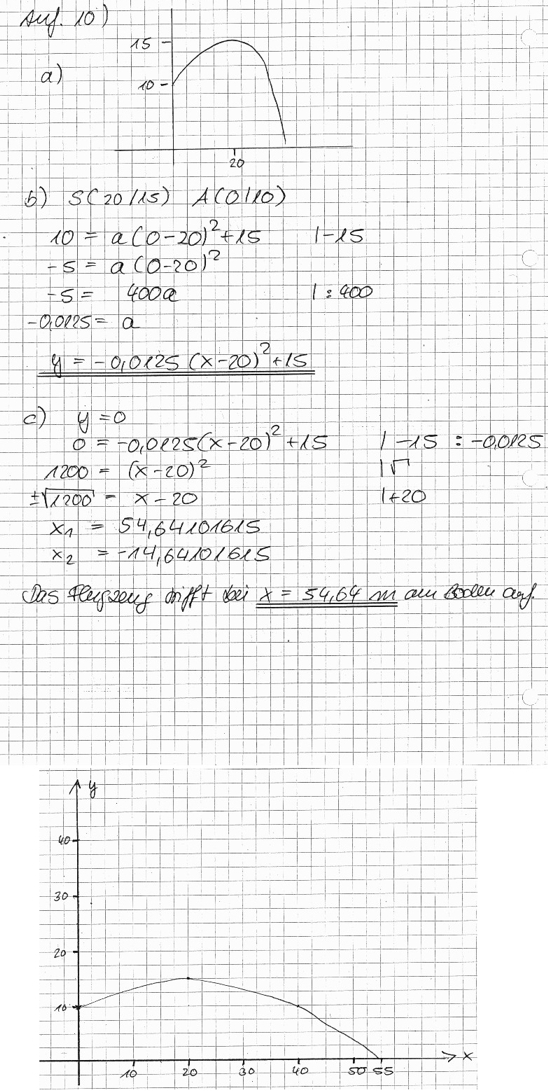 Auf. 10)
a)
15
10
20
b) S(20/15) A(0/10)
10 = a(0-20)²+15 |-15
-5 = a(0-20)²
-5 = 400a |:400
-0,0125 = a
y = -0,0125(x-20)²+15
c) y=0
0 = -0,0125(x-20)²+15 |-15 :-0,0125
1200 = (x-20)² |√
±√1200 = x-20 |+20
x₁ = 54,64101615
x₂ = -14,64101615
Das Flugzeug trifft bei x = 54,64 m am Boden auf.
y
40
30
20
10
10 20 30 40 50 55 x